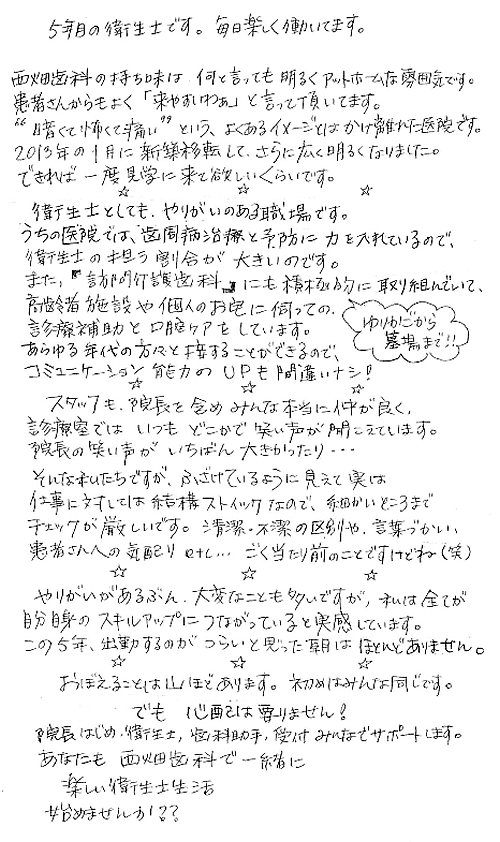 5年目の衛生士です。毎日楽しく働いてます。
西畑歯科の持ち味は 何と言っても 明るくアットホームな雰囲気です。
患者さんからもよく「来やすいわぁ」と言って頂いてます。
“暗くて怖くて痛い”という、よくあるイメージとはかけ離れた医院です。
2013年の1月に新築移転して、さらに広く明るくなりました。
できれば一度見学に来て欲しいくらいです。
☆ ☆ ☆
衛生士としても、やりがいのある職場です。
うちの医院では、歯周病治療と予防に力を入れているので、
衛生士の担う割合が大きいのです。
また、『訪問介護歯科』にも積極的に取り組んでいて、
高齢者施設や個人のお宅に伺っての、
診療補助と口腔ケアをしています。
ゆりかごから
墓場まで!!
あらゆる年代の方々と接することができるので、
コミュニケーション能力のUPも間違いナシ!
☆ ☆ ☆
スタッフも、院長を含めみんな本当に仲が良く、
診療室では いつも どこかで笑い声が聞こえています。
院長の笑い声が いちばん 大きかったり・・・
そんな私たちですが、ふざけているように見えて実は
仕事に対しては結構ストイックなので、細かいところまで
チェックが厳しいです。清潔・不潔の区別や、言葉づかい、
患者さんへの気配り etc… ごく当たり前のことですけどね(笑)
☆ ☆ ☆
やりがいがあるぶん、大変なことも多いですが、私は全てが
自分自身のスキルアップにつながっていると実感しています。
この5年、出勤するのが つらいと思った朝は ほとんどありません。
☆ ☆ ☆
おぼえることは山ほどあります。初めはみんな同じです。
でも 心配は要りません!
院長はじめ、衛生士、歯科助手、受付 みんなでサポートします。
あなたも 西畑歯科で一緒に
楽しい衛生士生活
始めませんか!??